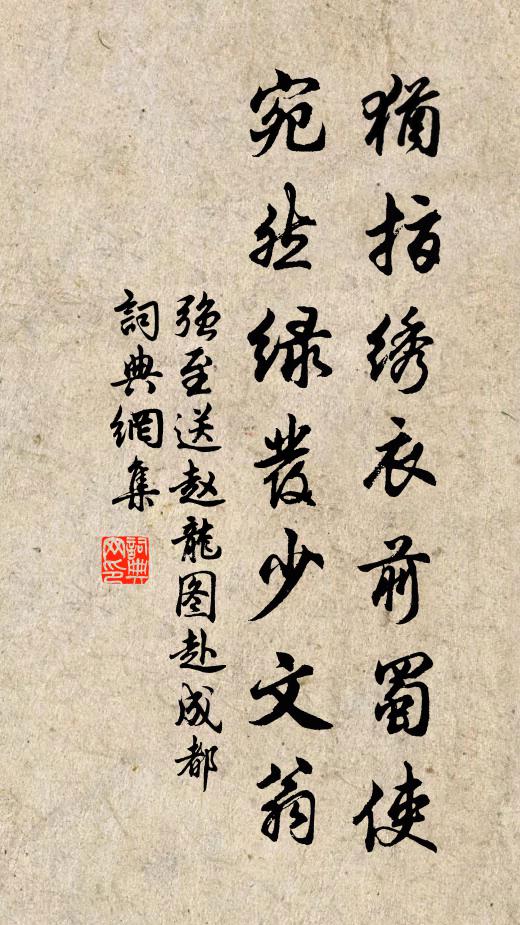 猶指绣衣前蜀使
宛然緑發少文翁
强至送赵龍图赴成都
詞典網集
詞典网印